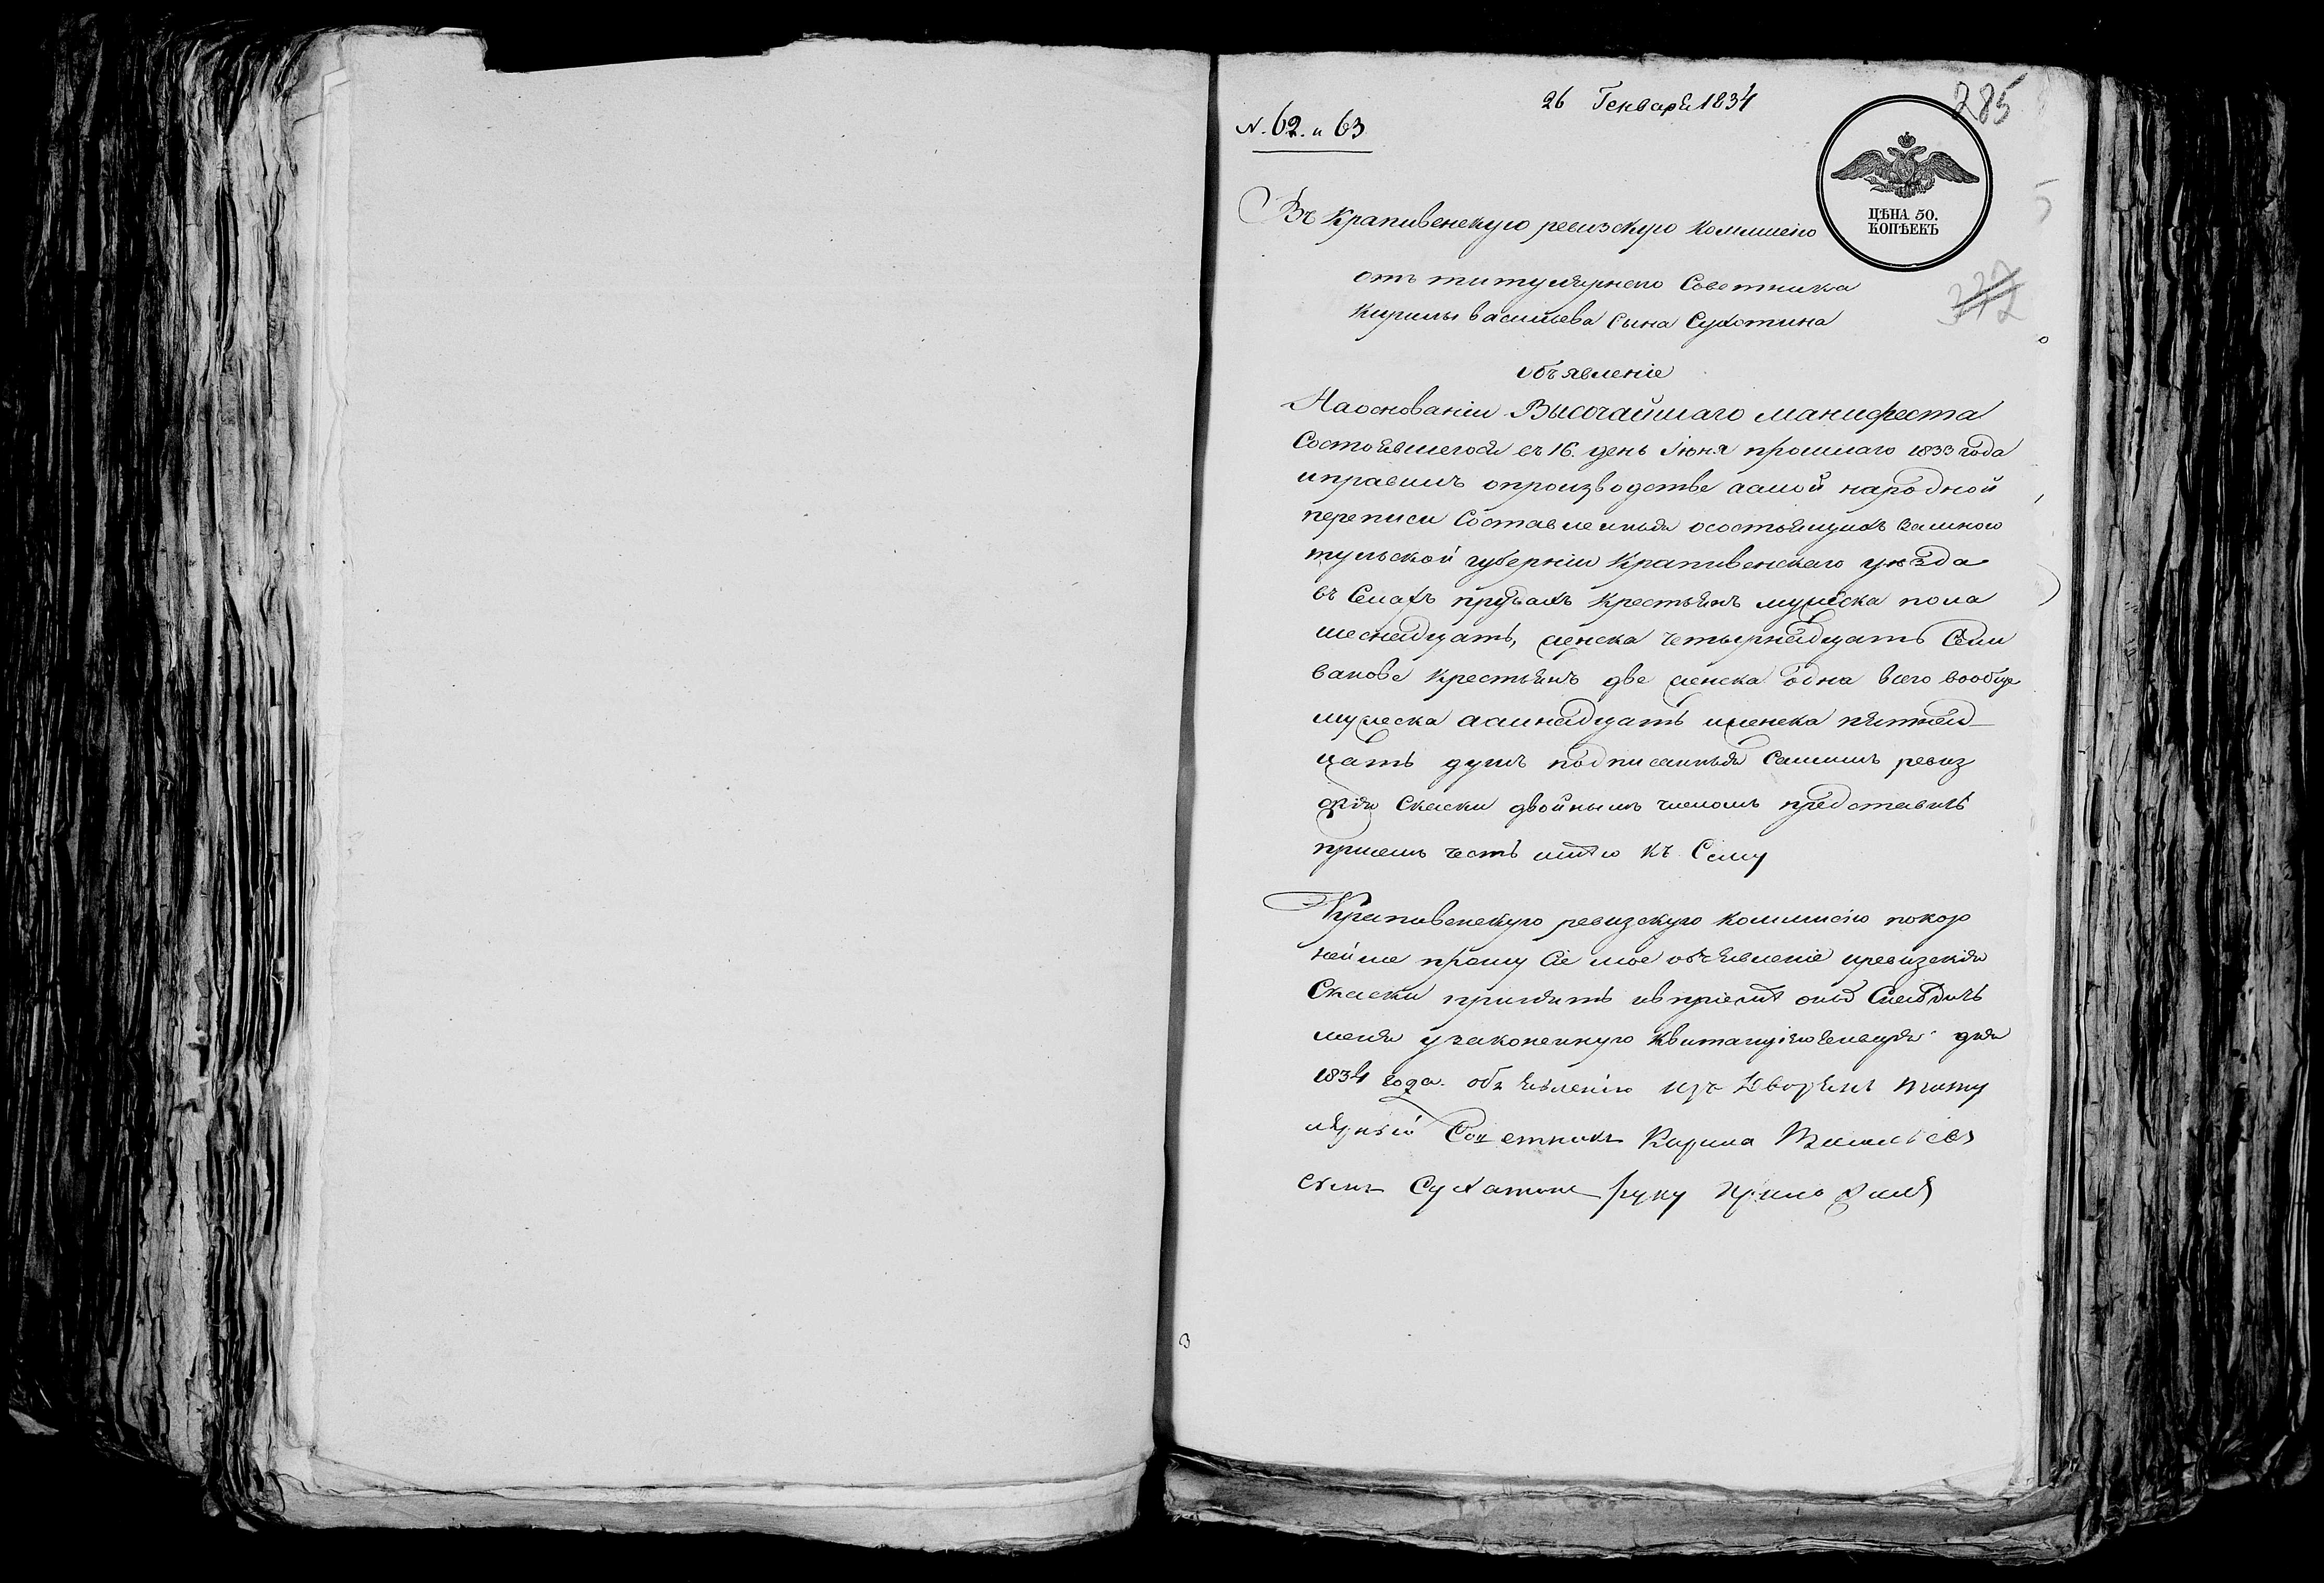 26 Генваря 1834
285
N. 62. и 63
ЦѢНА 50.
КОПѢЕКЪ
Въ Крапивенскую ревизскую Коммисію
отъ титулярнаго Советника
Кирилы васильева Сына Сухотина
объявленіе
На основаніи Высочайшаго манифеста
Состоявшегося въ 16. день Іюня прошлаго 1833 года
и правилъ о производстве осмой народной
переписи Составленныя о состоящихъ замною
тульской губерніи Крапивенскаго уезда
въ Селахъ прудахъ Крестьянъ мужеска пола
шеснадцать, женска четырнадцать Сели
ванове Крестьянъ две женска одна всего вообще
мужеска осмнадцать и женска пятнад
цать душъ подписанныя Самимъ ревиз
скія Скаски двойнымъ числомъ представить
присемъ честь имею къ Сему
Крапивенскую ревизскую коммисію покор
нейше прошу Сіе мое объявленіе и ревизскія
Скаски принять и въ пріеме оныхъ Снабдить
меня узаконенную квитанціею Генваря дня
1834 года. объявленію изъ Дворянъ титу
лярный Советникъ Кирила Васильевъ
сынъ Сухотинъ руку приложилъ